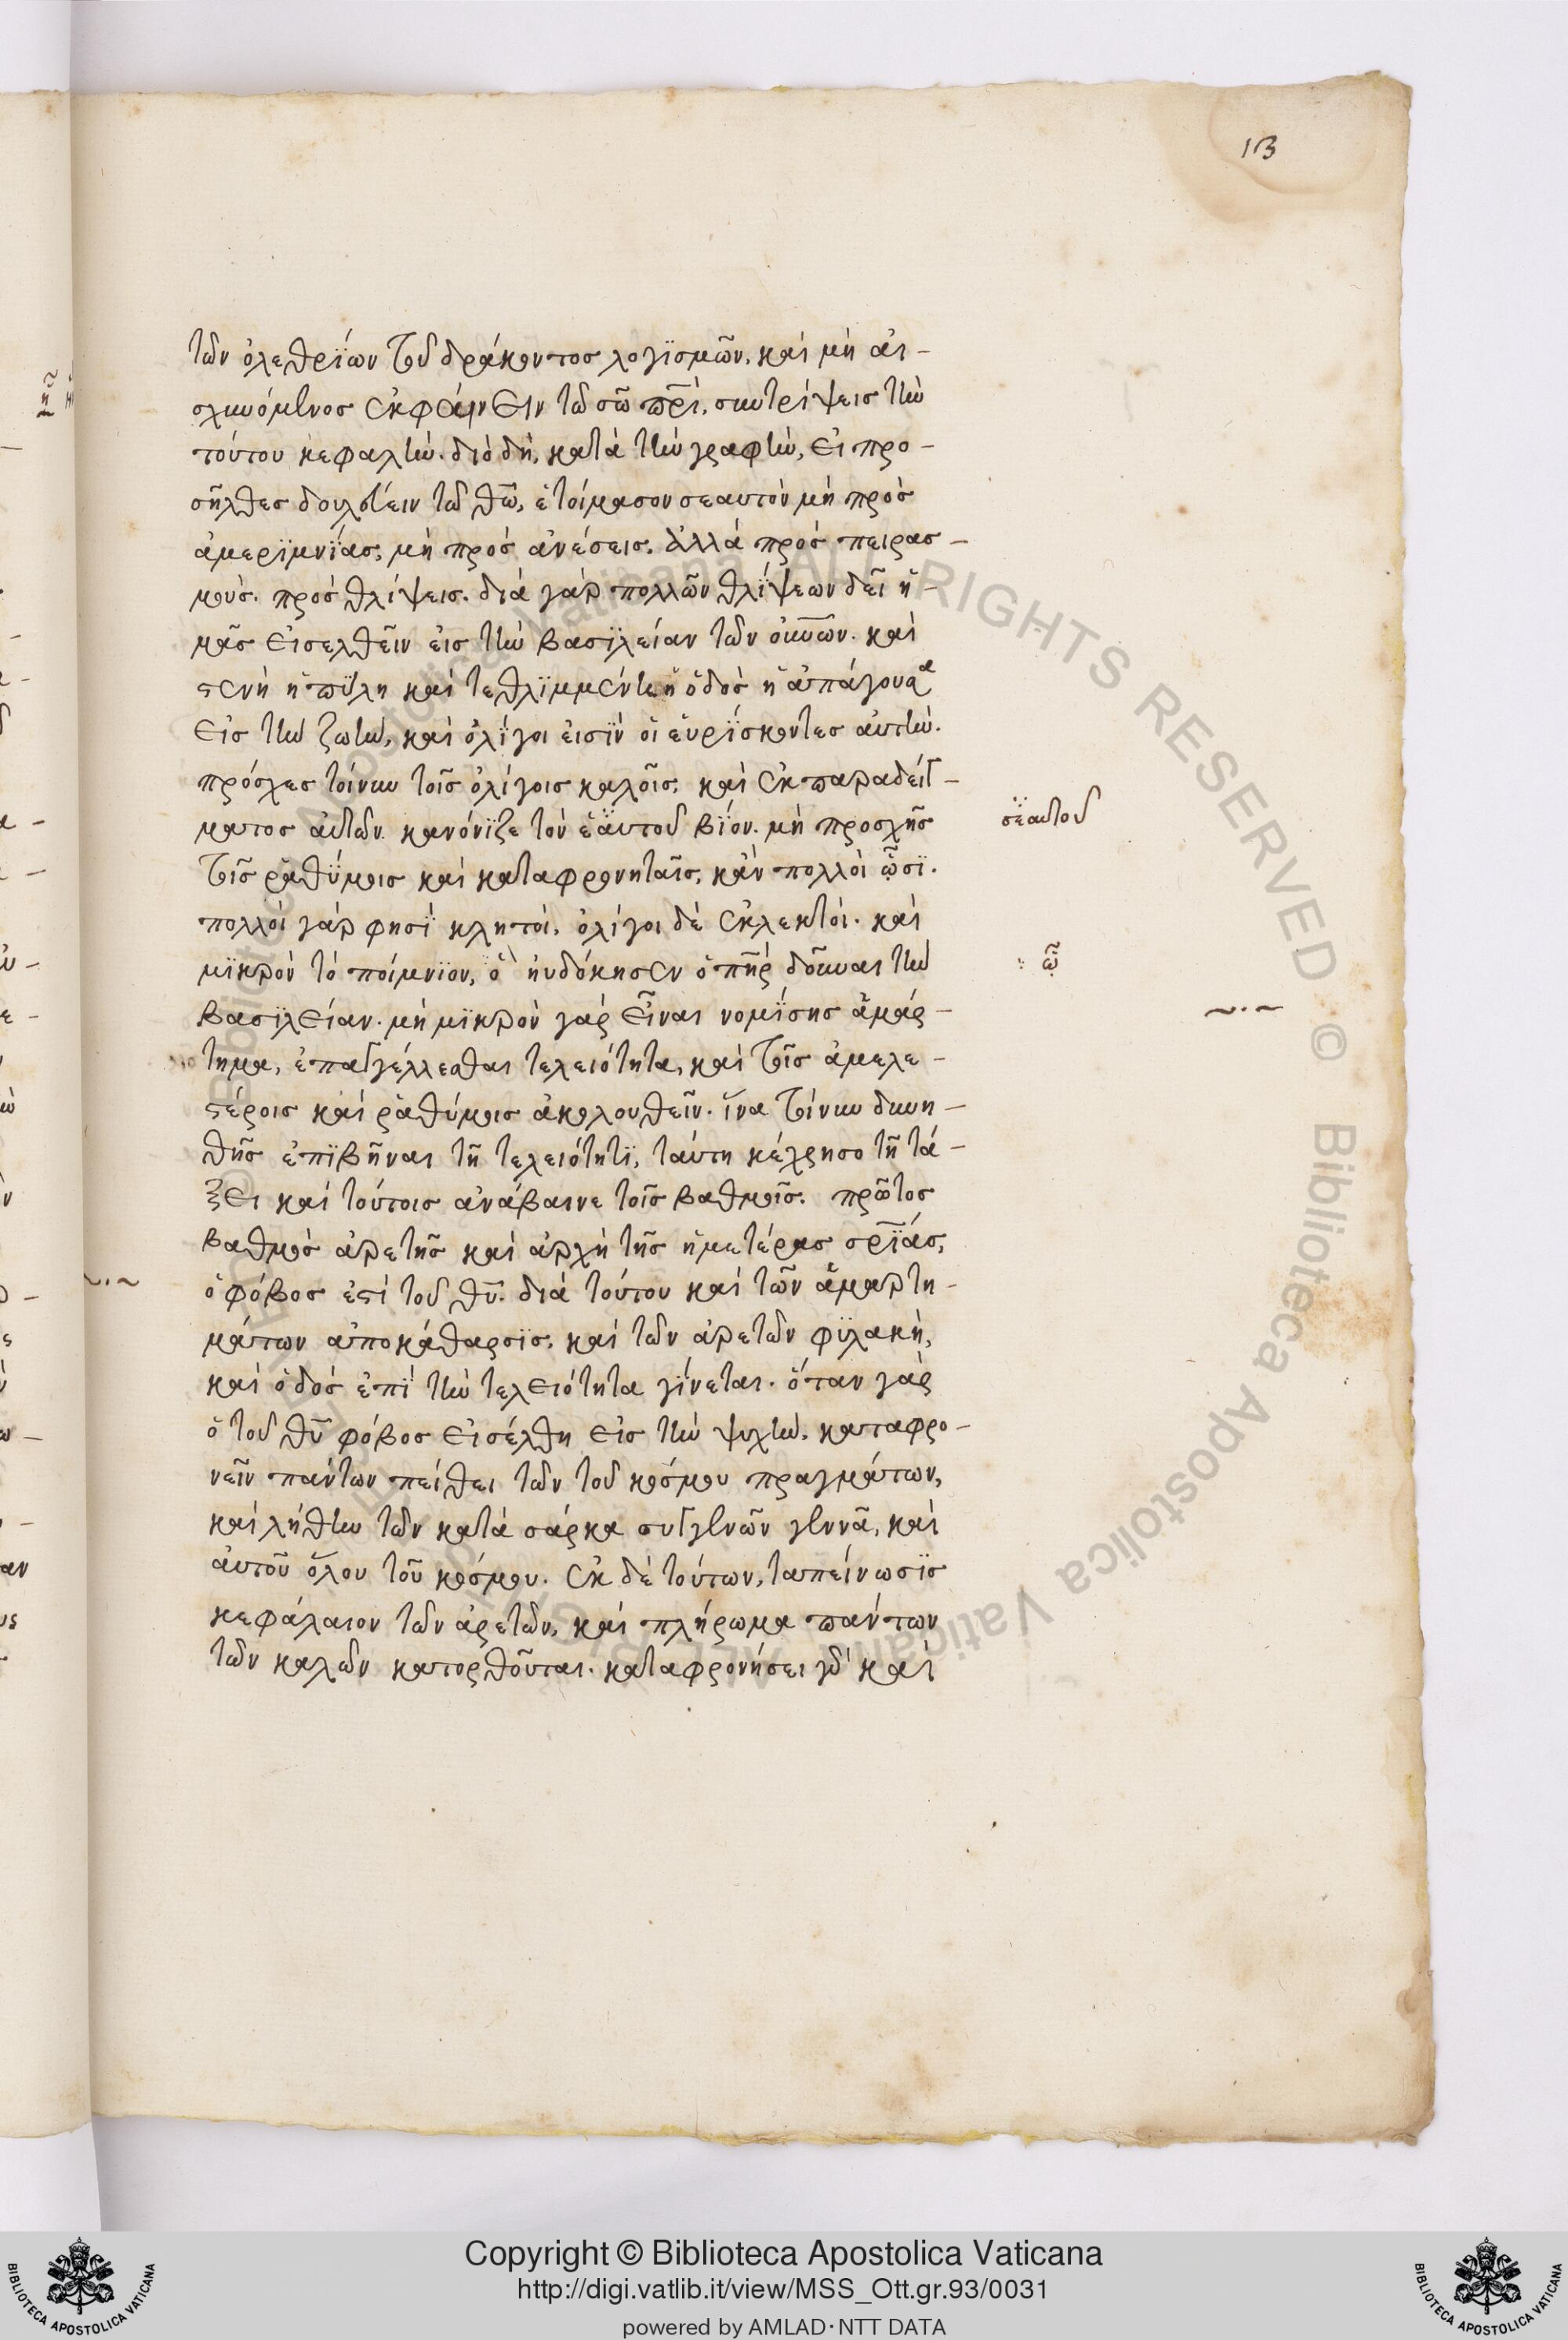 13
τῶν ὀλεθρΐων τοῦ δράκοντος λογϊσμῶν, καὶ μὴ αἰ-
σχυνόμενος ἐκφαίνειν τῶ σῶ πρι, συντρίψεις τὴν
τούτου κεφαλήν. διὸ δὴ, κατὰ τὴν γραφὴν, εἰ προ-
σῆλθες δουλεύειν τῶ θω, ἑτοίμασον σεαυτὸν μὴ πρὸς
ἀμερϊμνΐας, μὴ πρὸς ἀνέσεις. ἀλλὰ πρὸς πειρασ-
μοὺς. πρὸς θλίψεις. διὰ γὰρ πολλῶν θλΐψεων δεῖ ἡ-
μᾶς εἰσελθεῖν εἰς τὴν βασϊλείαν τῶν οὐνῶν. καὶ
στενὴ ἡ πΰλη καὶ τεθλϊμμένη ἡ ὁδὸς ἡ ἀπάγουσα
εἰς τὴν ζωὴν, καὶ ὀλίγοι εἰσὶν οἱ εὑρΐσκοντες αὐτήν.
πρόσχες τοίνυν τοῖς ὀλίγοις καλοῖς, καὶ ἐκ παραδείγ-
ματος αὐτῶν κανόνϊζε τὸν ἑαυτοῦ βΐον. μὴ προσχῆς
σεαυτοῦ
τοῖς ῥαθΰμοις καὶ καταφρονηταῖς, κἂν πολλοὶ ὦσϊ.
πολλοὶ γάρ φησϊ κλητοὶ, ὀλίγοι δὲ ἐκλεκτοί. καὶ
μϊκρὸν τὸ ποίμνϊον, ὃ ηὐδόκησεν ὁ πηρ δοῦναι τὴν
ᾧ
βασϊλείαν. μὴ μϊκρὸν γὰρ εἶναι νομΐσης ἁμάρ-
τημα, ἐπαγγέλλεσθαι τελειότητα, καὶ τοῖς ἀμελε-
στέροις καὶ ῥαθύμοις ἀκολουθεῖν. ἵνα τοίνυν δυνη-
θῆς ἐπϊβῆναι τῆ τελειότητϊ, ταύτη κέχρησο τῆ τά-
ξει καὶ τούτοις ἀνάβαινε τοῖς βαθμοῖς. πρῶτος
βαθμὸς ἀρετῆς καὶ ἀρχὴ τῆς ἡμετέρας σρϊάς,
ὁ φόβος ἐστὶ τοῦ θυ. διὰ τούτου καὶ τῶν ἁμαρτη-
μάτων ἀποκάθαρσϊς, καὶ τῶν ἀρετῶν φϋλακὴ,
καὶ ὁδὸς ἐπϊ τὴν τελειότητα γΐνεται. ὅταν γὰρ
ὁ τοῦ θυ φόβος εἰσέλθη εἰς τὴν ψυχὴν, καταφρο-
νεῖν πάντων πείθει τῶν τοῦ κόσμου πραγμάτων,
καὶ λήθην τῶν κατὰ σάρκα συγγενῶν γεννᾶ, καὶ
αὐτοῦ ὅλου τοῦ κόσμου. ἐκ δὲ τούτων, ταπείνωσϊς
κεφάλαιον τῶν ἀρετῶν, καὶ πλήρωμα πάντων
τῶν καλῶν κατορθοῦται. καταφρονήσει γὰρ καὶ
Copyright © Biblioteca Apostolica Vaticana
http://digi.vatlib.it/view/MSS_Ott.gr.93/0031
powered by AMLAD·NTT DATA